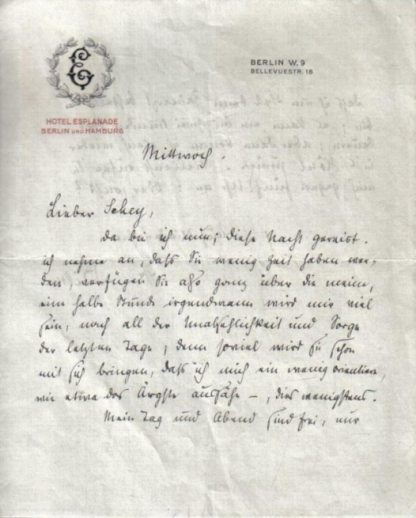 E
BERLIN W. 9
BELLEVUESTR. 18
HOTEL ESPLANADE
BERLIN UND HAMBURG
Mittwoch.
Lieber Schey,
da bin ich nun; diese Nacht gereist.
ich nehme an, daß Sie wenig Zeit haben wer-
den, verfügen Sie also ganz über die meine,
eine halbe Stunde irgendwann wird mir viel
sein, nach all der Unabsehlichkeit und Sorge
der letzten Tage; denn soviel wird sie schon
mit sich bringen, daß ich mich ein wenig orientiere,
wie etwa das Ärgste aussähe –, dies wenigstens.
Mein Tag und Abend sind frei, nur